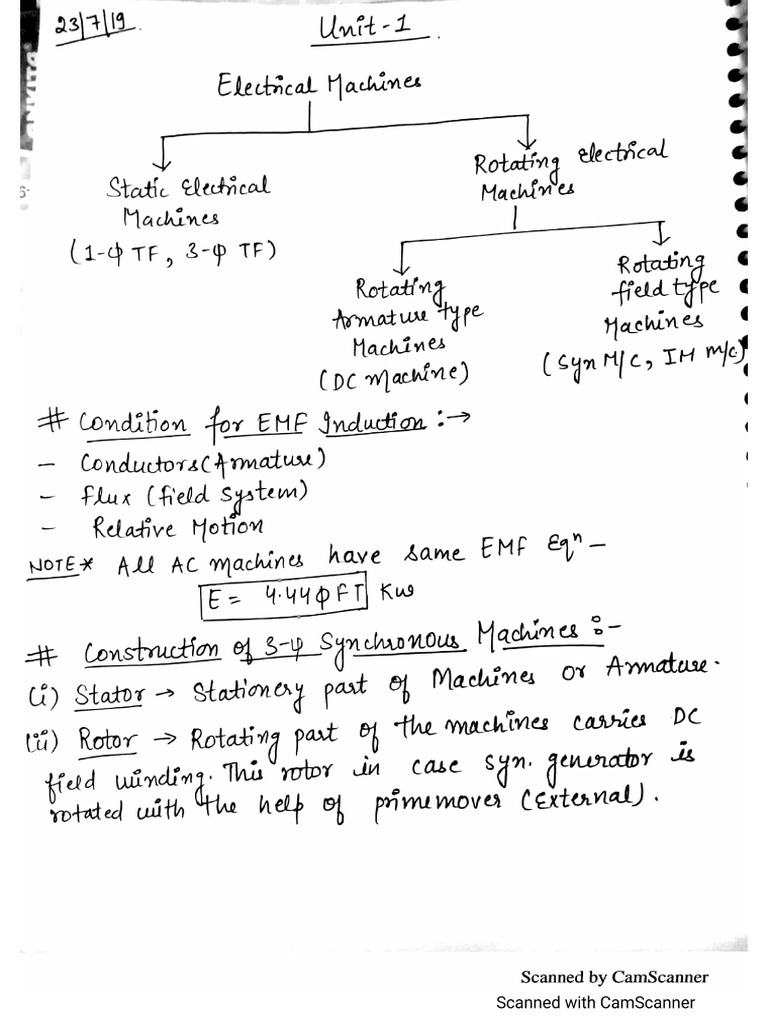 23/7/19.
Unit-1.
ANKITA
Electrical Machines
Static Electrical
Machines
(1-φ TF, 3-φ TF)
Rotating Electrical
Machines
Rotating
Armature type
Machines
(DC Machine)
Rotating
field type
Machines
(Syn M/C, IM m/c)
# Condition for EMF Induction :→
- Conductors (Armature)
- Flux (field System)
- Relative Motion
NOTE* All AC machines have same EMF Eqⁿ -
E = 4.44φFT Kw
# Construction of 3-φ Synchronous Machines :-
(i) Stator → Stationery part of Machines or Armature.
(ii) Rotor → Rotating part of the machines carries DC
field winding. This rotor in case syn. generator is
rotated with the help of primemover (External).
Scanned by CamScanner
Scanned with CamScanner